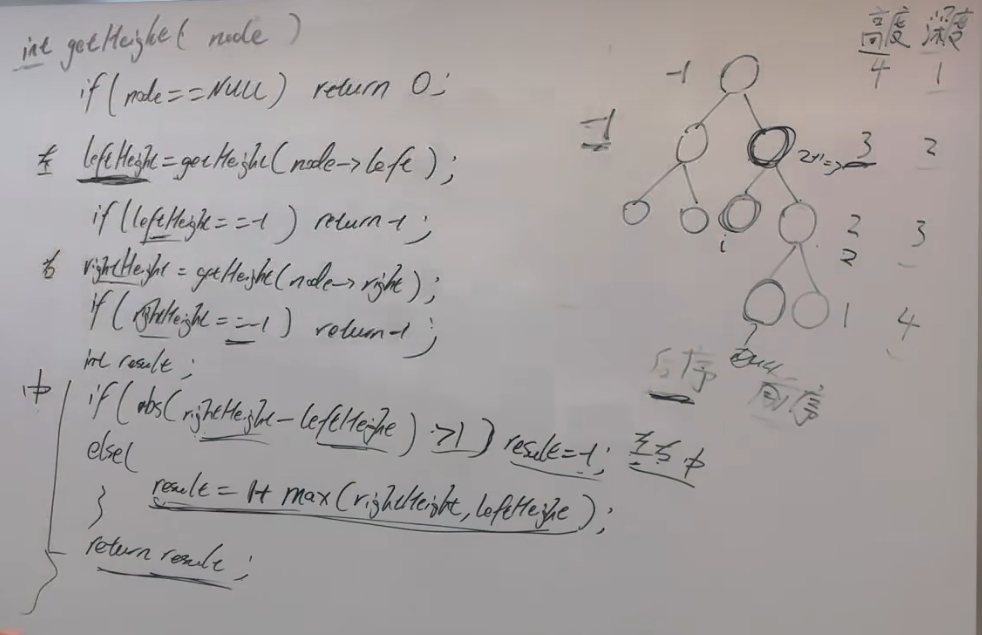 int getHeight( node )
if(node==NULL) return 0;
左 leftHeight=getHeight(node->left);
if(leftHeight==-1) return-1;
右 rightHeight=getHeight(node->right);
if(rightHeight==-1) return-1;
int result;
中 if(abs(rightHeight-leftHeight)>1) result=-1;
else{
result=1+max(rightHeight,leftHeight);
}
return result;
高度 深度
-1 4 1
-1
3 2
2 3
2
1 4
后序
左右中